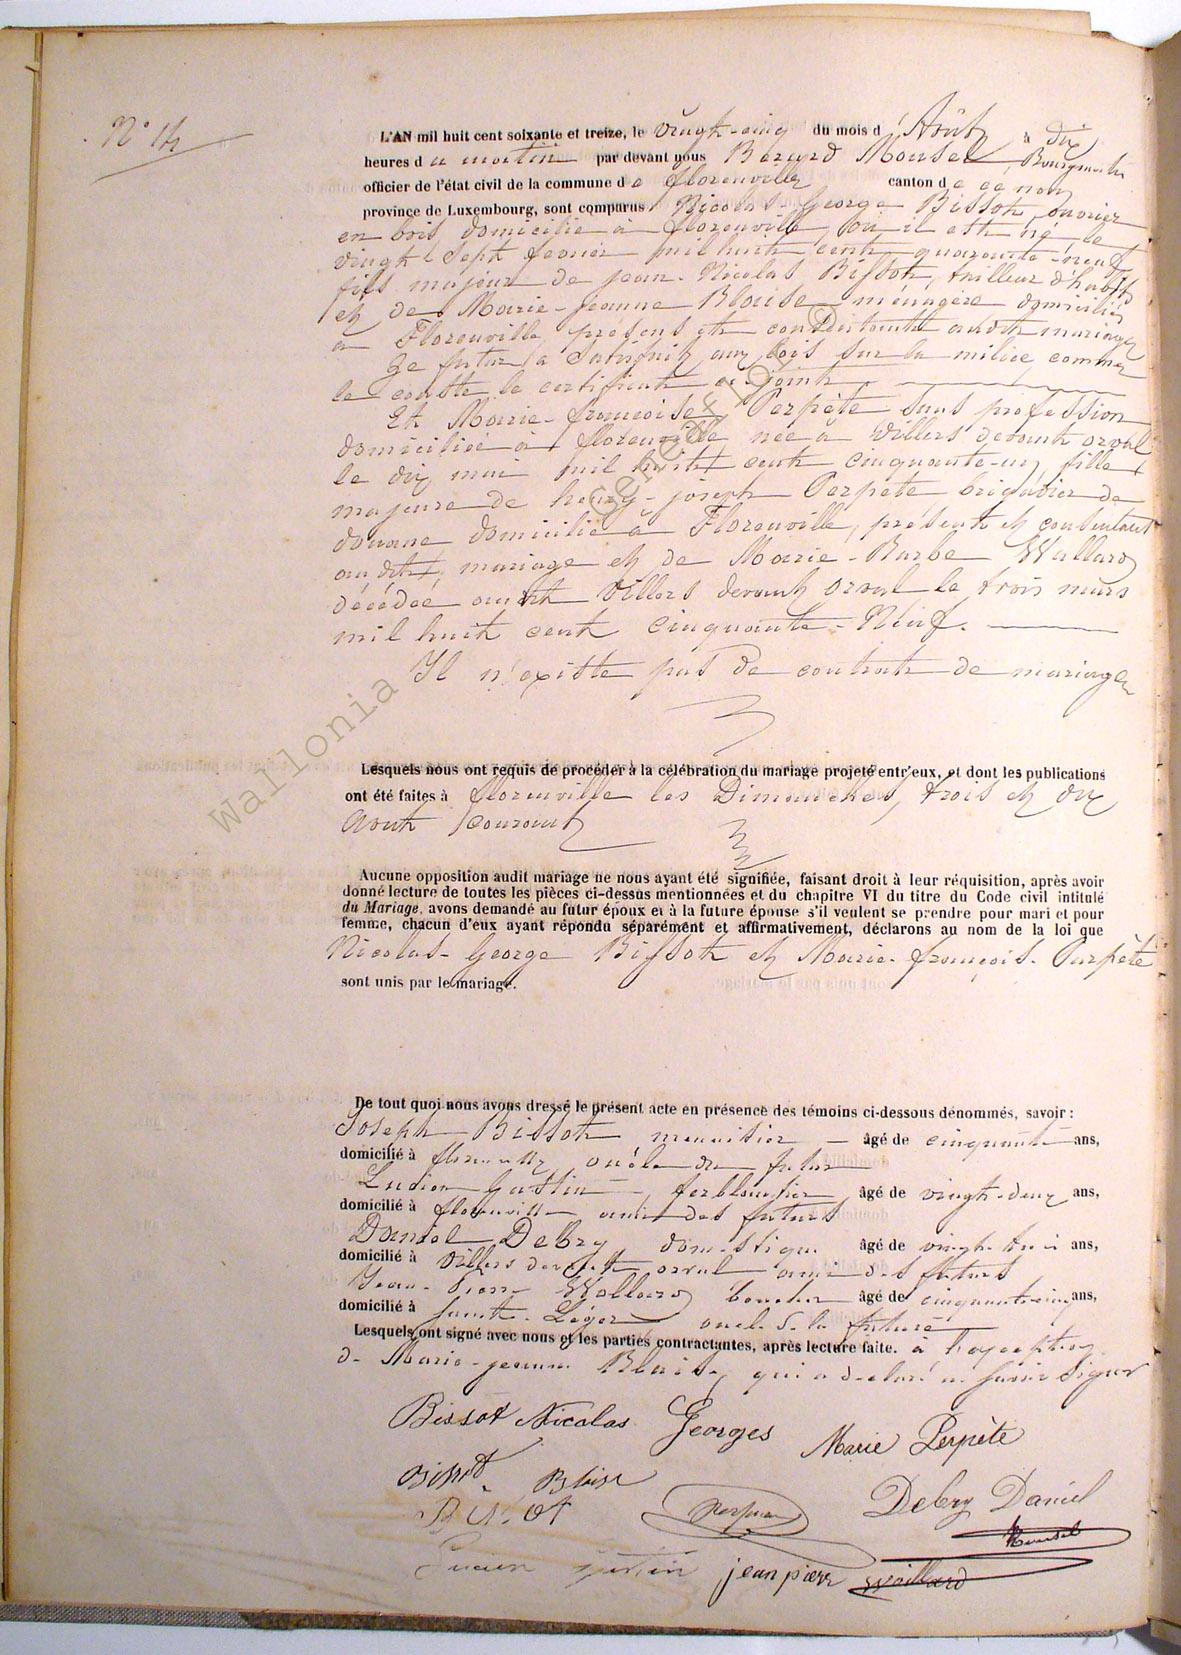 N° 14
L'AN mil huit cent soixante et treize, le vingt-cinq du mois d'Août à dix
heures du matin par devant nous Bérard Mousel, Bourgmestre
officier de l'état civil de la commune de florenville canton de ce nom
province de Luxembourg, sont comparus Nicolas George Bissot, ouvrier
en bois domicilié à florenville où il est né le
vingt sept février mil huit cent quarante-neuf
fils majeur de jean-Nicolas Bissot, tailleur d'habits
et de Marie-jeanne Blaise ménagère domiciliés
à Florenville, présens et consentants audit mariage
Le futur a satisfait aux lois sur la milice comme
le conste le certificat ci-joint.
Et Marie-françoise Perpète sans profession
domiciliée à florenville née à Villers devant orval
le dix mai mil huit cent cinquante-un, fille
majeure de henry-joseph Perpète brigadier de
douane domicilié à Florenville, présent et consentant
audit mariage et de Marie-Barbe Wallard
décédée audit Villers devant orval le trois mars
mil huit cent cinquante-Neuf.
Il n'existe pas de contrat de mariage
Lesquels nous ont requis de procéder à la célébration du mariage projeté entr'eux, et dont les publications
ont été faites à florenville les Dimanches, trois et dix
Août courant
Aucune opposition audit mariage ne nous ayant été signifiée, faisant droit à leur réquisition, après avoir
donné lecture de toutes les pièces ci-dessus mentionnées et du chapitre VI du titre du Code civil intitulé
du Mariage, avons demandé au futur époux et à la future épouse s'il veulent se prendre pour mari et pour
femme, chacun d'eux ayant répondu séparément et affirmativement, déclarons au nom de la loi que
Nicolas-George Bissot et Marie-françois-Perpète
sont unis par le mariage.
De tout quoi nous avons dressé le présent acte en présence des témoins ci-dessous dénommés, savoir :
Joseph Bissot menuisier âgé de cinquante ans,
domicilié à florenville, oncle du futur
Lucien Justin, ferblantier, âgé de vingt-deux ans,
domicilié à florenville ami des futurs
Daniel Debry domestique âgé de vingt-trois ans,
domicilié à Villers devant orval ami des futurs
Jean-Pierre Wallard boucher âgé de cinquante-cinq ans,
domicilié à Saint-Léger oncle de la future
Lesquels ont signé avec nous et les parties contractantes, après lecture faite. à l'exception
de Marie-jeanne Blaise, qui a déclaré ne savoir Signer
Bissot Nicolas Georges Marie Perpète
Bissot Blaise
Bissot Perpète Debry Daniel
Mousel
Lucien Justin jean pierre Waillard
Wallonia Geneaflor ©